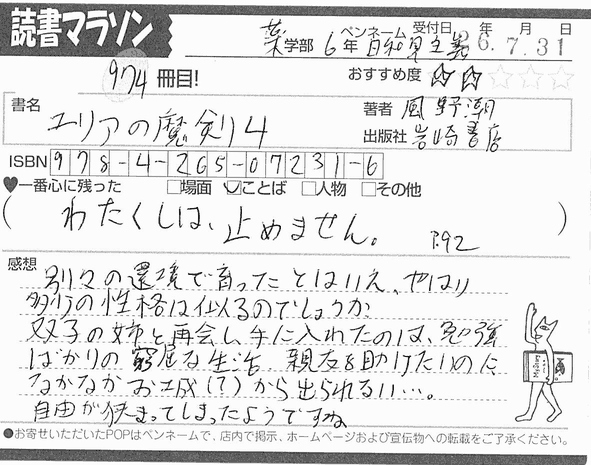 読書マラソン
薬学部 6年 ペンネーム 日和見主義 受付日 26年7月31日
974冊目! おすすめ度 ☆☆☆☆☆
書名 エリアの魔剣4
著者 風野潮
出版社 岩崎書店
ISBN 978-4-265-07231-6
♥一番心に残った □場面 ☑ことば □人物 □その他
(わたくしは、止めません。 P.92)
感想
別々の環境で育ったとはいえ、やはり
多少の性格は似るのでしょうか
双子の姉と再会し、手に入れたのは、勉強
ばかりの窮屈な生活。親友を助けたいのに
なかなかお城(?)から出られない…。
自由が狭まってしまったようですね
●お寄せいただいたPOPはペンネームで、店内で掲示、ホームページおよび宣伝物への転載をご了承ください。